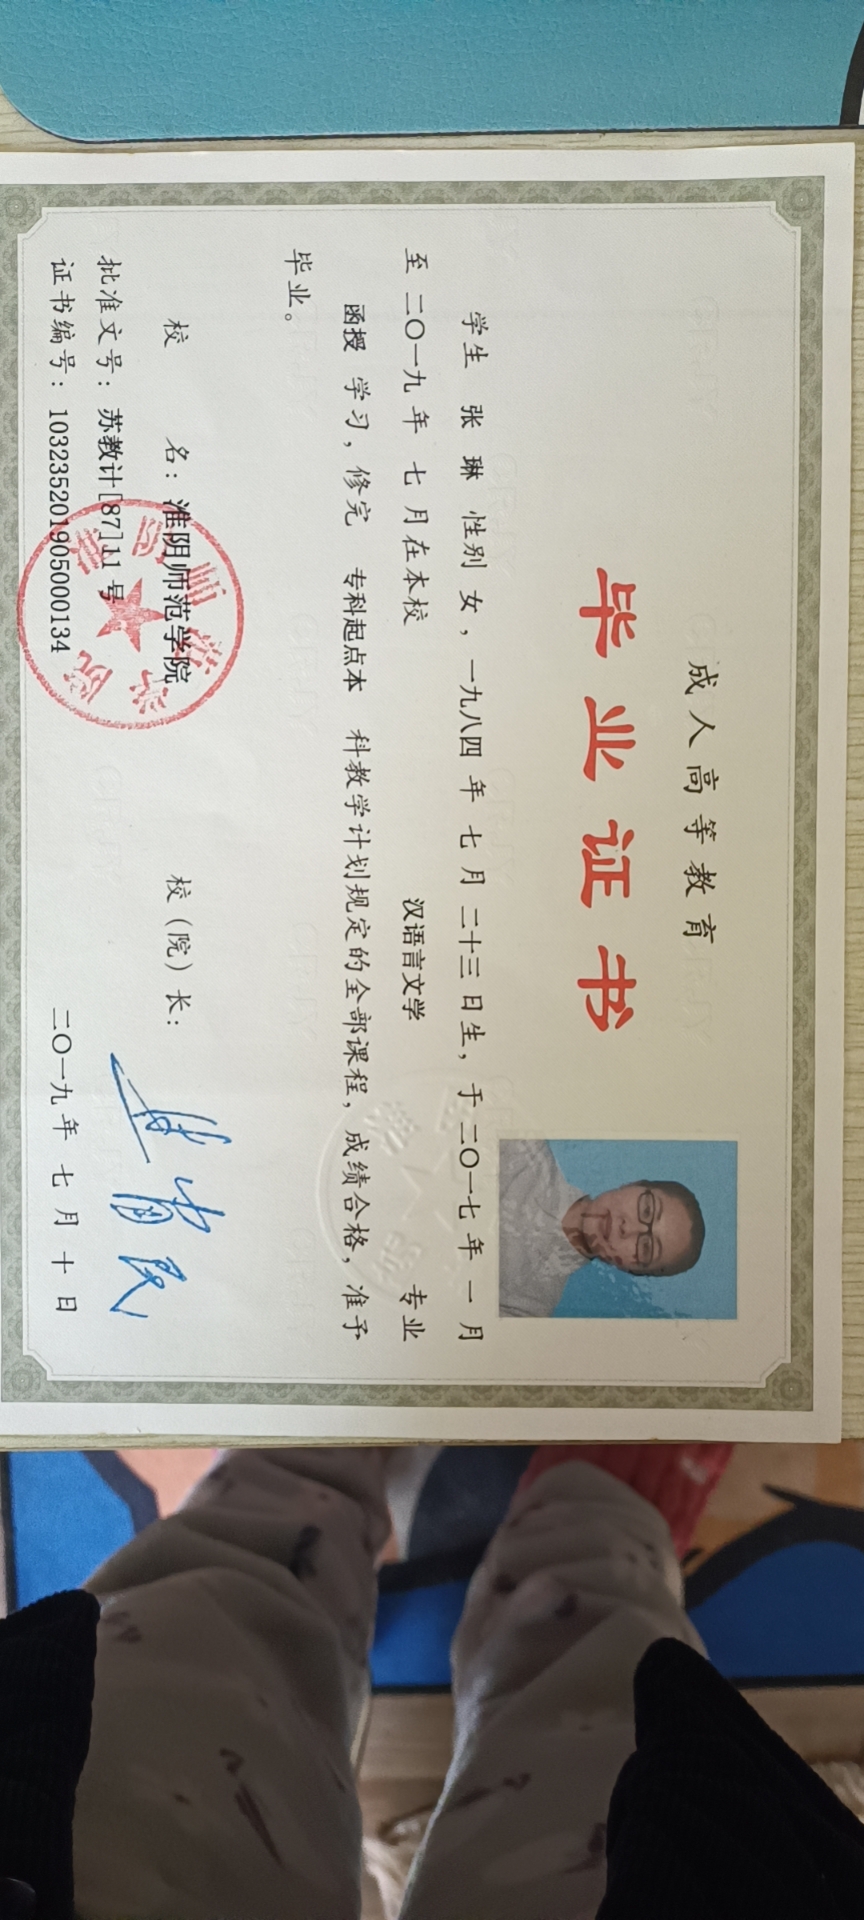 成人高等教育
毕业证书
学生 张琳 性别 女，一九八四 年 七 月 二十三 日生，于 二〇一七 年 一 月
至 二〇一九 年 七 月在本校 汉语言文学 专业
函授 学习，修完 专科起点本 科教学计划规定的全部课程，成绩合格，准予
毕业。
校 名：淮阴师范学院 校（院）长：
批准文号：苏教计[87]11 号
证书编号：103235201905000134 二〇一九 年 七 月 十 日